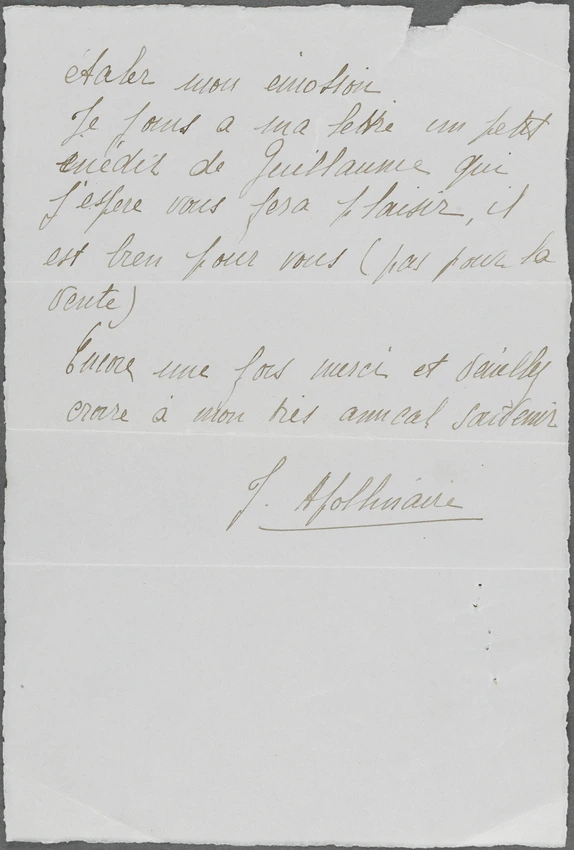 étaler mon émotion
Je joins a ma lettre un petit
inédit de Guillaume qui
j'espere vous fera plaisir, il
est bien pour vous (pas pour la
vente)
Encore une fois merci et veuillez
croire à mon très amical souvenir
J. Apollinaire